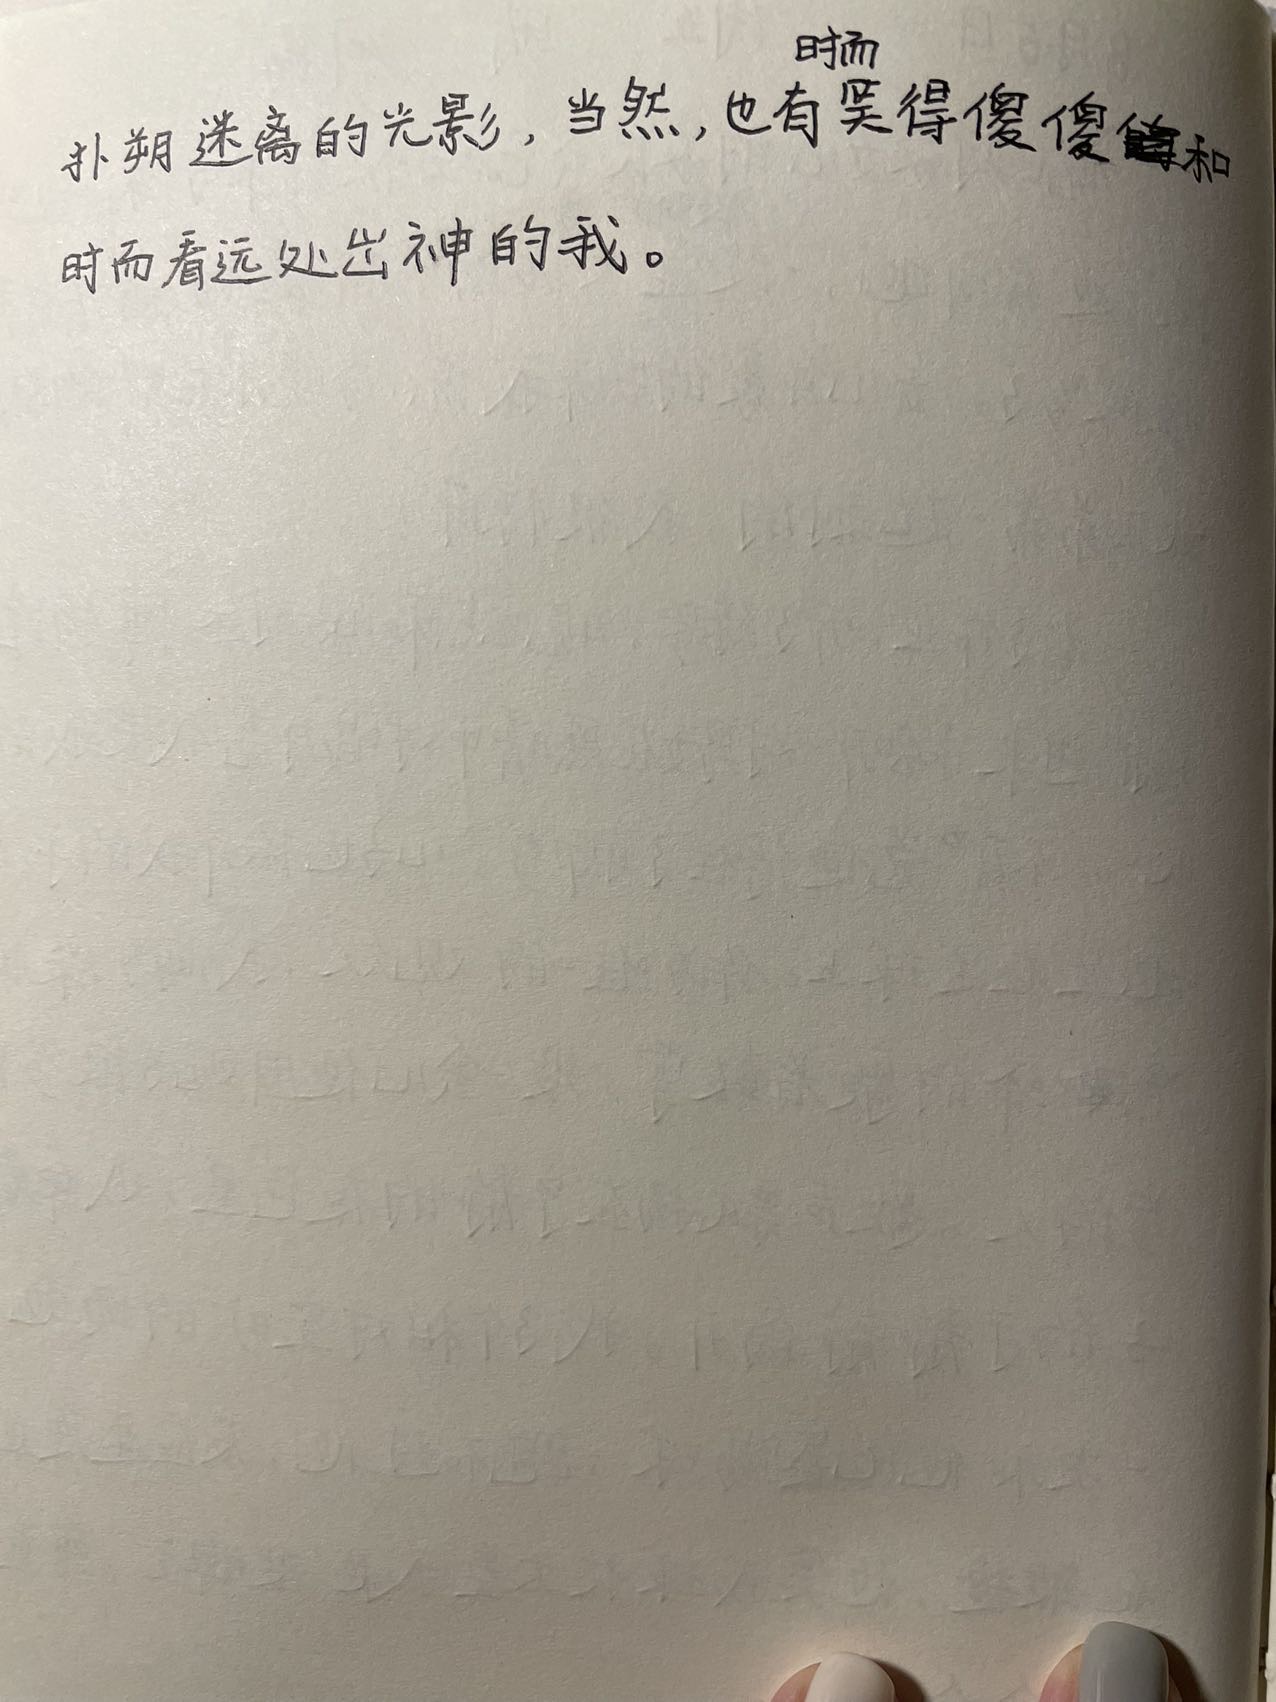 时而
扑朔迷离的光影，当然，也有笑得傻傻和
时而看远处出神的我。